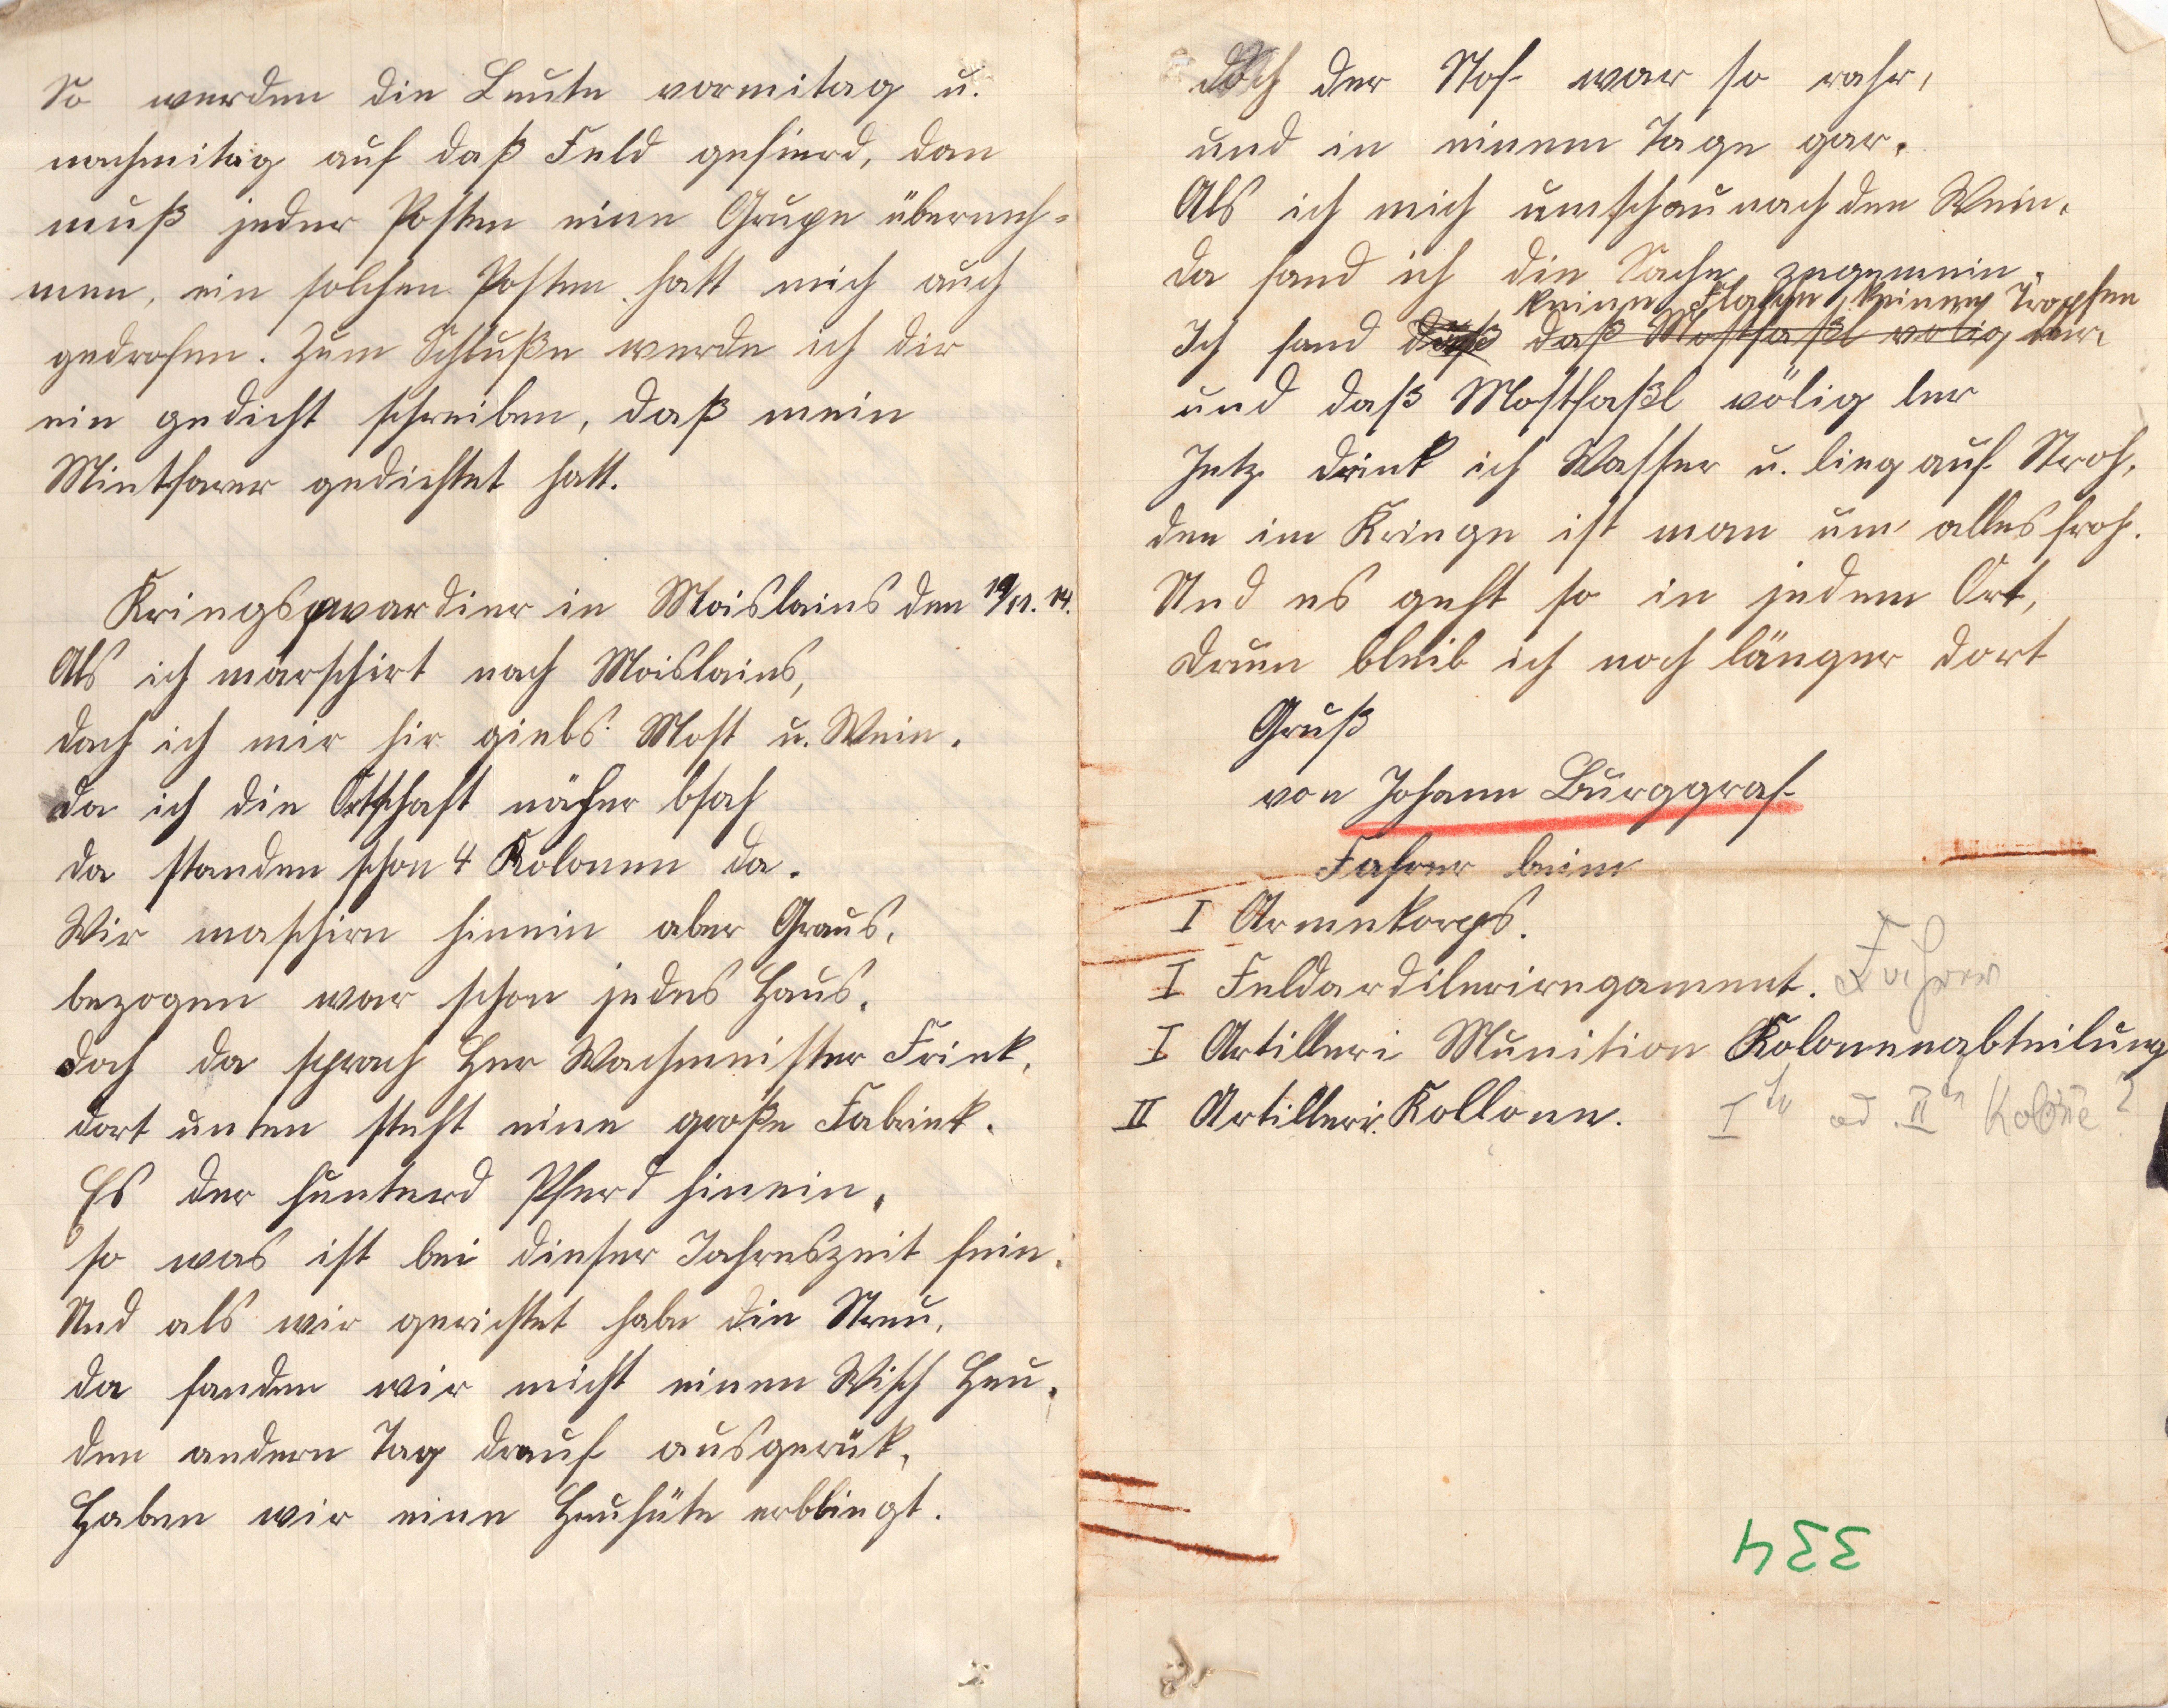 So werden die Leute vormitag u.
nachmitag auf daß Feld gefierd, dan
muß jeder Posten eine Grupe überneh-
men, ein solchen Posten hatt mich auch
gedrofen. Zum Schluße werde ich dir
ein gedicht schreiben, daß mein
Mietfarer gedichtet hatt.
Kriegsqwardier in Moislains den 19/11. 14.
Als ich marschirt nach Moislains,
dach ich mir hir giebs Most u. Wein.
da ich die Ortschaft näher bsah
da standen schon 4 Kolonen da.
Wir maschirn hinein aber Graus,
bezogen war schon jedes Haus.
doch da sprach Her Wachmeister Friek,
dort unten steht eine große Fabriek.
Es der hunterd Pferd hinein,
so was ist bei dieser Jahreszeit fein.
Und als wir gerichtet habe die Streu,
da fanden wir nicht einen Wisch Heu.
den andern Tag drauf ausgerük,
Haben wir eine Heuhüte erbliegt.
doch der Stof war so rahr,
und in einem Tage gar.
Als ich mich umschau nach den Wein,
da fand ich die Sache zegemein.
keine Flasche, keinen Tropfen
Ich fand daß daß Mostfaßl völig ler.
und daß Mostfaßl völig ler
Jetz drink ich Wasser u. lieg auf Stroh,
den im Kriege ist man um alles froh.
Und es geht so in jedem Ort,
drum bleib ich noch länger dort
Gruß
von Johann Burggraf
Fahrer beim
I Armeekorps.
I Feldardileriregament. Fahrer
I Artilleri Munition Kolonenabteilung
II Artilleri. Kollone. I te od. II te Kolone?
334